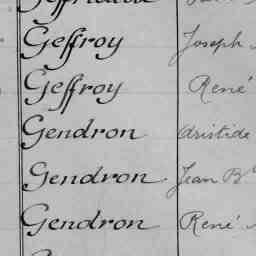 Geffroy Joseph
Geffroy René
Gendron Aristide
Gendron Jean B
Gendron René